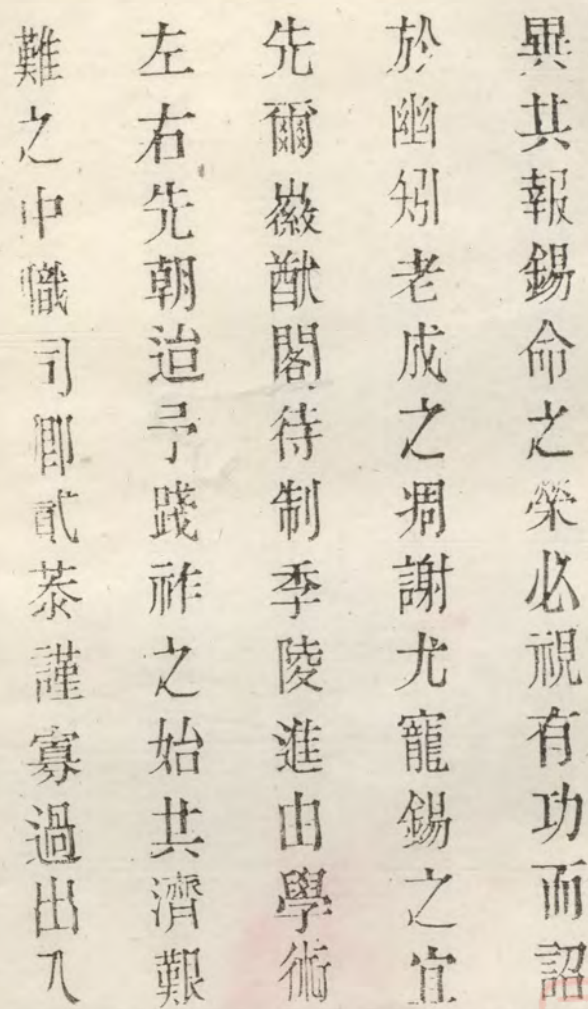 異共報錫命之榮必視有功而詔
於幽矧老成之凋謝尤寵錫之宜
先爾徽猷閣待制季陵進由學術
左右先朝迨予踐祚之始共濟艱
難之中職司卿貳恭謹寡過出入